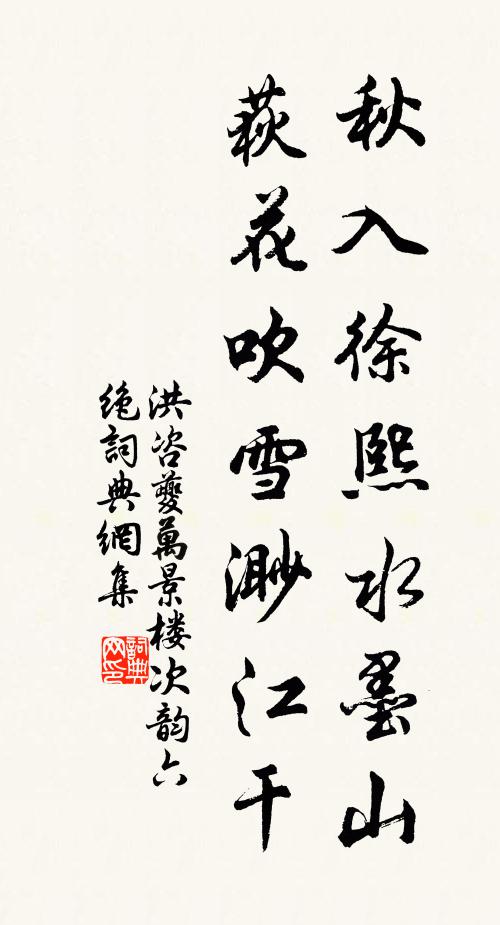 秋入徐熙水墨山
荻花吹雪渺江干
洪咨夔萬景楼次韵六
絶詞典網集
詞典
网印